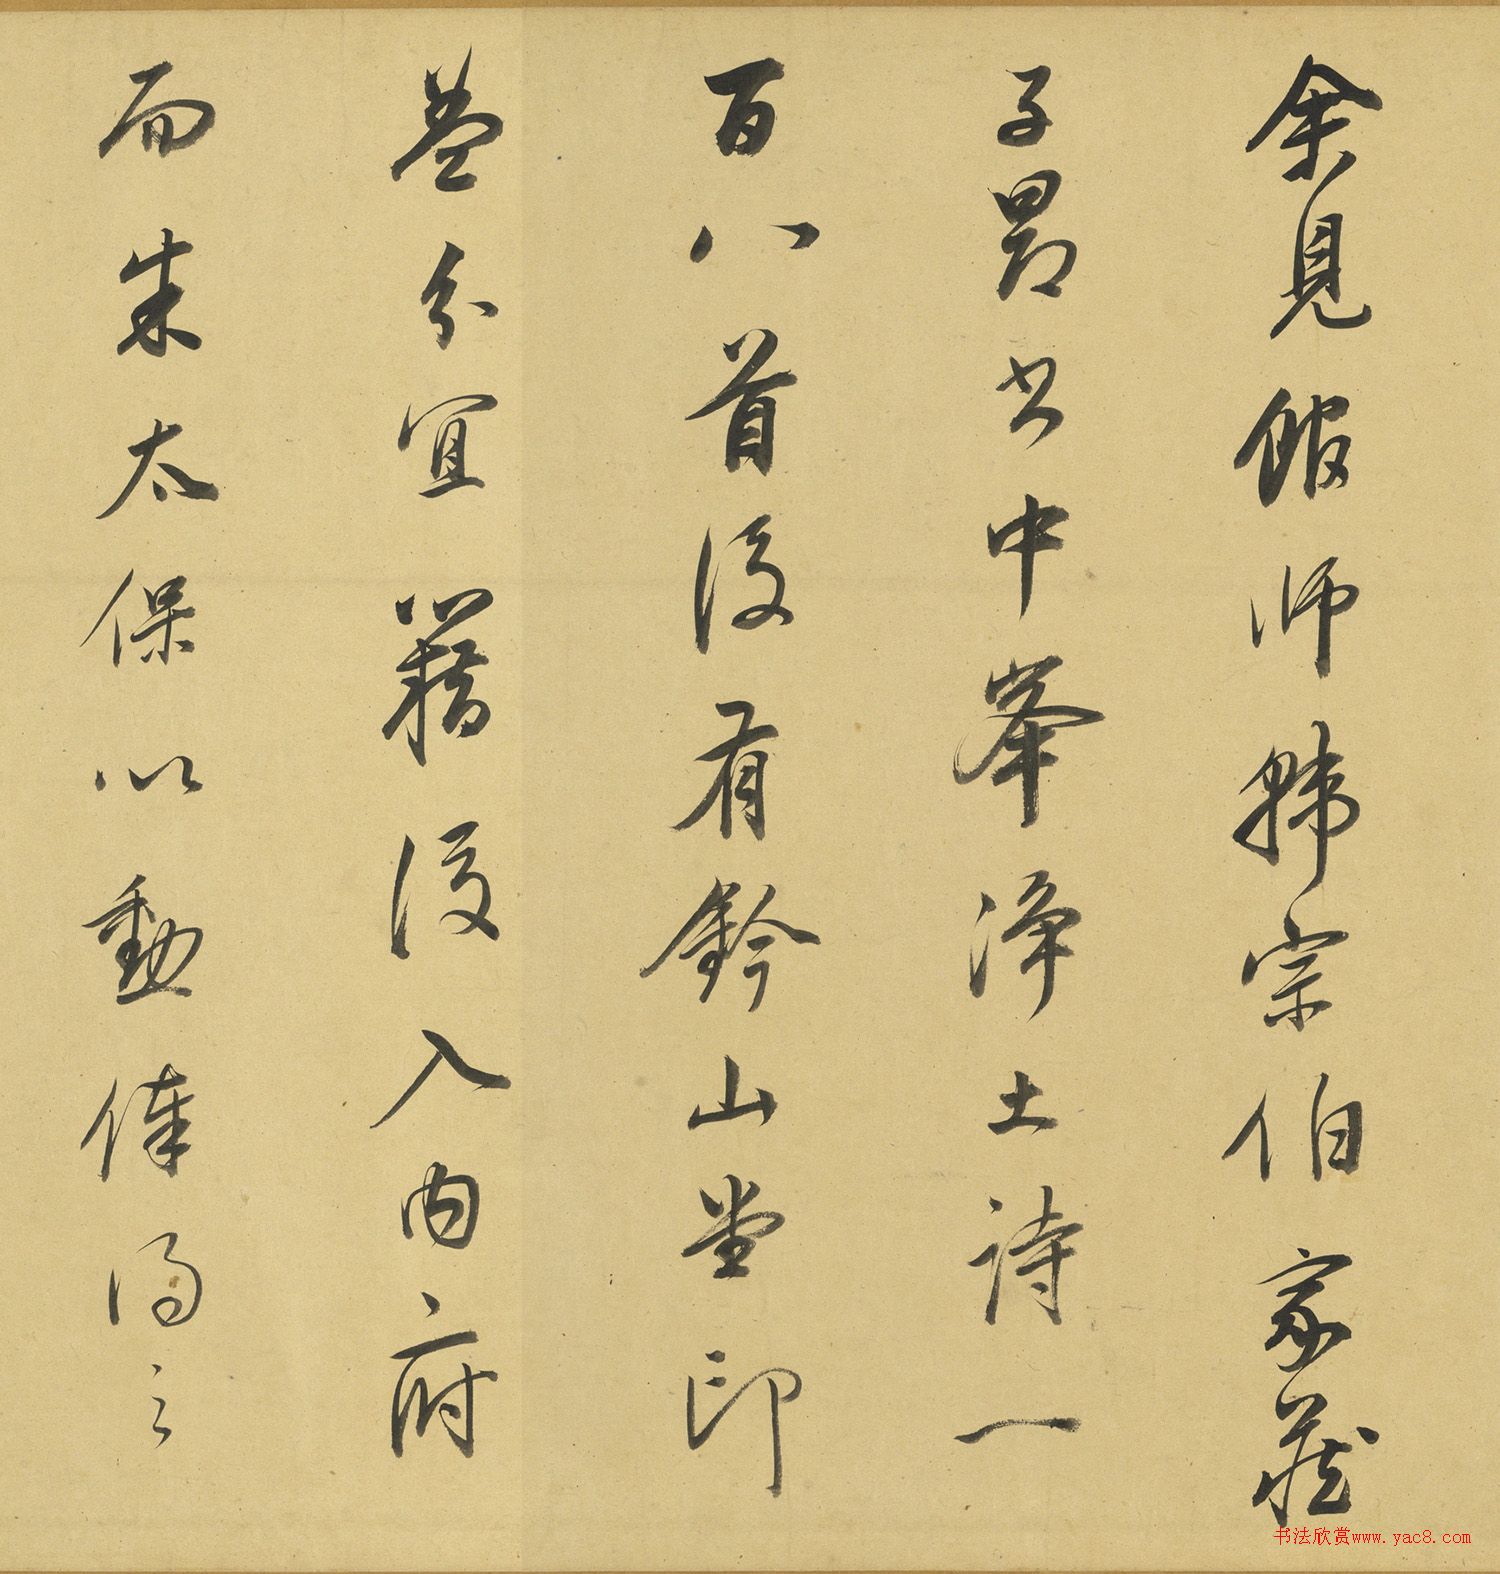 余見館師韓宗伯家藏
子昂書中峯淨土詩一
百八首後有鈐山堂印
蓋分宜籍後入內府
而朱太保以勳俸得之
书法欣赏www.yac8.com